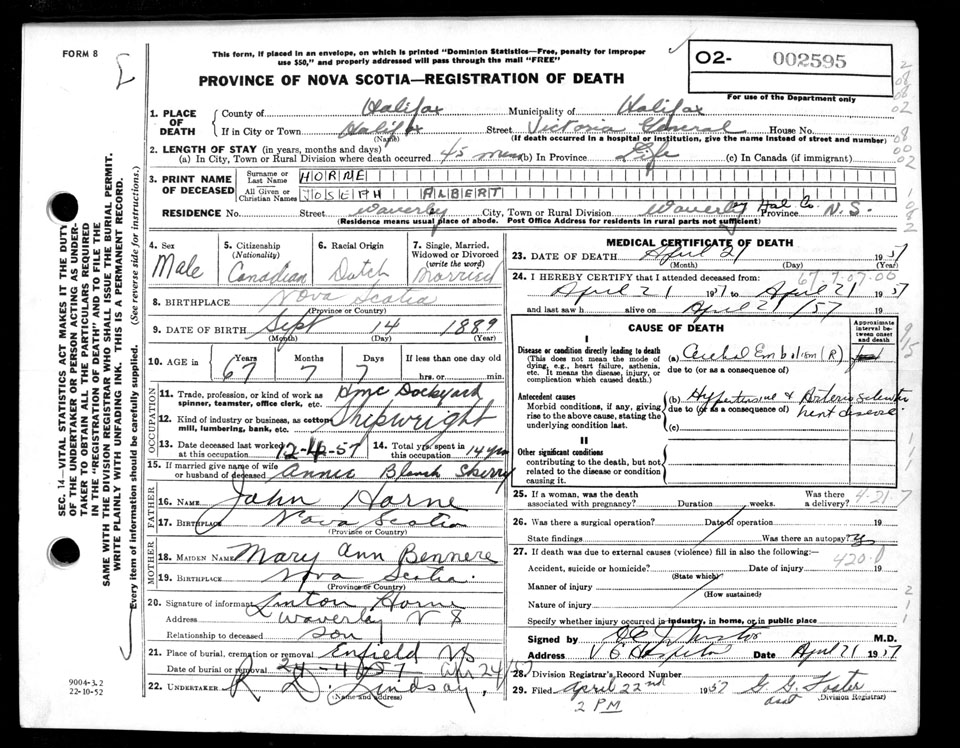 FORM 8
This form, if placed in an envelope, on which is printed "Dominion Statistics—Free, penalty for improper
use $50," and properly addressed will pass through the mail "FREE"
PROVINCE OF NOVA SCOTIA—REGISTRATION OF DEATH
O2- 002595
For use of the Department only
1. PLACE OF DEATH
County of Halifax Municipality of Halifax
If in City or Town Halifax Street Victoria General House No.
(Name) (If death occurred in a hospital or institution, give the name instead of street and number)
2. LENGTH OF STAY (in years, months and days)
(a) In City, Town or Rural Division where death occurred 45 mins (b) In Province Life (c) In Canada (if immigrant)
3. PRINT NAME OF DECEASED
Surname or Last Name HORNE
All Given or Christian Names JOSEPH ALBERT
RESIDENCE No. Street Waverley City, Town or Rural Division Waverley Hal Co. Province N.S.
(Residence means usual place of abode. Post Office Address for residents in rural parts not sufficient)
4. Sex Male
5. Citizenship (Nationality) Canadian
6. Racial Origin Dutch
7. Single, Married, Widowed or Divorced (write the word) Married
8. BIRTHPLACE Nova Scotia
(Province or Country)
9. DATE OF BIRTH Sept 14 1889
(Month) (Day) (Year)
10. AGE in Years 67 Months 7 Days 7 If less than one day old
hrs. or min.
OCCUPATION
11. Trade, profession, or kind of work as spinner, teamster, office clerk, etc. HMC Dockyard
12. Kind of industry or business, as cotton mill, lumbering, bank, etc. Shipwright
13. Date deceased last worked at this occupation
14. Total yrs. spent in this occupation 14 yrs
15. If married give name of wife or husband of deceased Annie Blanch Skerry
FATHER
16. NAME John Horne
17. BIRTHPLACE Nova Scotia
(Province or Country)
MOTHER
18. MAIDEN NAME Mary Ann Bennere
19. BIRTHPLACE Nova Scotia
(Province or Country)
20. Signature of informant Linton Horne
Address Waverley N S
Relationship to deceased son
21. Place of burial, cremation or removal Enfield NS
Date of burial or removal 24-4-57 Apr 24/57
22. UNDERTAKER R D Lindsay
(Name and address)
MEDICAL CERTIFICATE OF DEATH
23. DATE OF DEATH April 21 1957
(Month) (Day) (Year)
24. I HEREBY CERTIFY that I attended deceased from:
67-7-07-00
April 21 1957 to April 21 1957
and last saw h alive on April 21/57
CAUSE OF DEATH
Approximate interval between onset and death
I
Disease or condition directly leading to death
(This does not mean the mode of dying, e.g., heart failure, asthenia, etc. It means the disease, injury, or complication which caused death.)
(a) Cerebral Embolism (R)
due to (or as a consequence of)
Antecedent causes
Morbid conditions, if any, giving rise to the above cause, stating the underlying condition last.
(b) Hypertensive & Arterio Sclerotic
due to (or as a consequence of) heart disease
(c)
II
Other significant conditions
contributing to the death, but not related to the disease or condition causing it.
25. If a woman, was the death associated with pregnancy? Duration weeks. Was there a delivery?
4-21-7
26. Was there a surgical operation? Date of operation 19
State findings Was there an autopsy?
27. If death was due to external causes (violence) fill in also the following:
420.1
Accident, suicide or homicide? Date of injury 19
(State which)
Manner of injury
(How sustained)
Nature of injury
Specify whether injury occurred in industry, in home, or in public place
Signed by M.D.
Address V G Hospital Date April 21 1957
28. Division Registrar's Record Number
29. Filed April 22nd 1957 G G Foster
2 PM asst (Division Registrar)
SEC. 14—VITAL STATISTICS ACT MAKES IT THE DUTY
OF THE UNDERTAKER OR PERSON ACTING AS UNDER-
TAKER TO OBTAIN ALL THE PARTICULARS REQUIRED
IN THE "REGISTRATION OF DEATH" AND TO FILE THE
SAME WITH THE DIVISION REGISTRAR WHO SHALL ISSUE THE BURIAL PERMIT.
WRITE PLAINLY WITH UNFADING INK. THIS IS A PERMANENT RECORD.
Every item of information should be carefully supplied. (See reverse side for instructions.)
9004-3.2
22-10-52